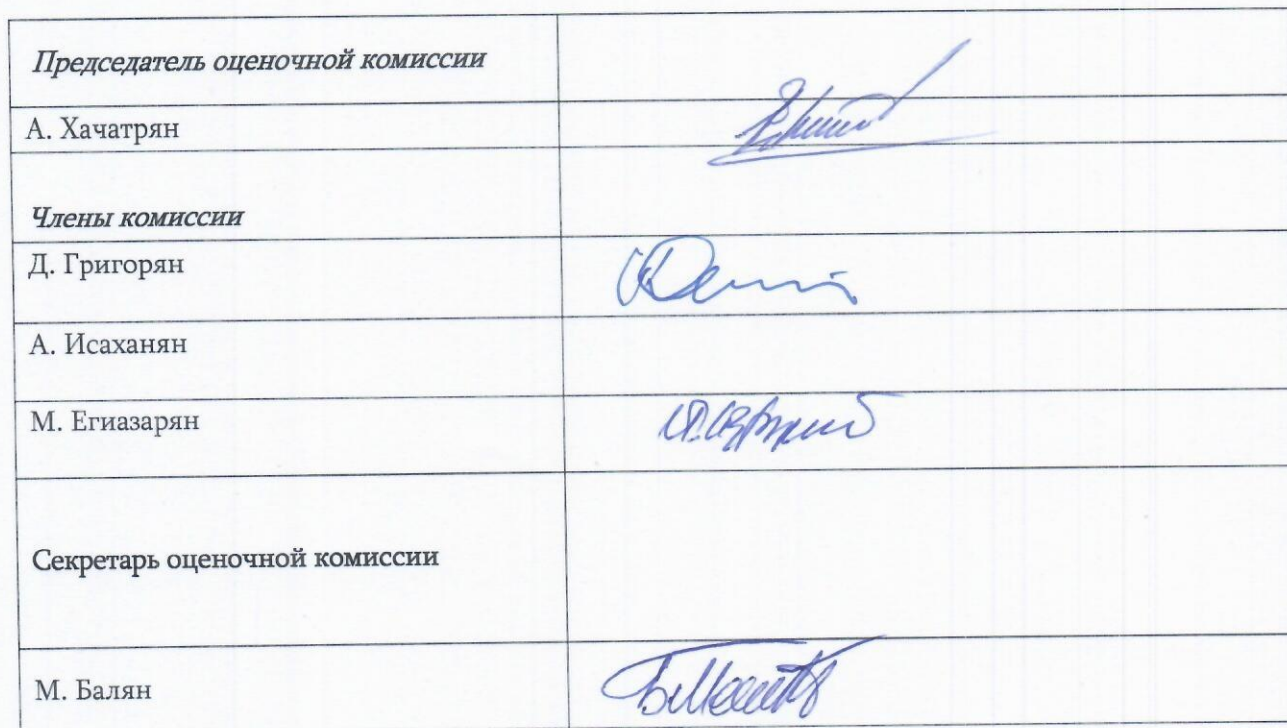 Председатель оценочной комиссии
А. Хачатрян
Члены комиссии
Д. Григорян
А. Исаханян
М. Егиазарян
Секретарь оценочной комиссии
М. Балян